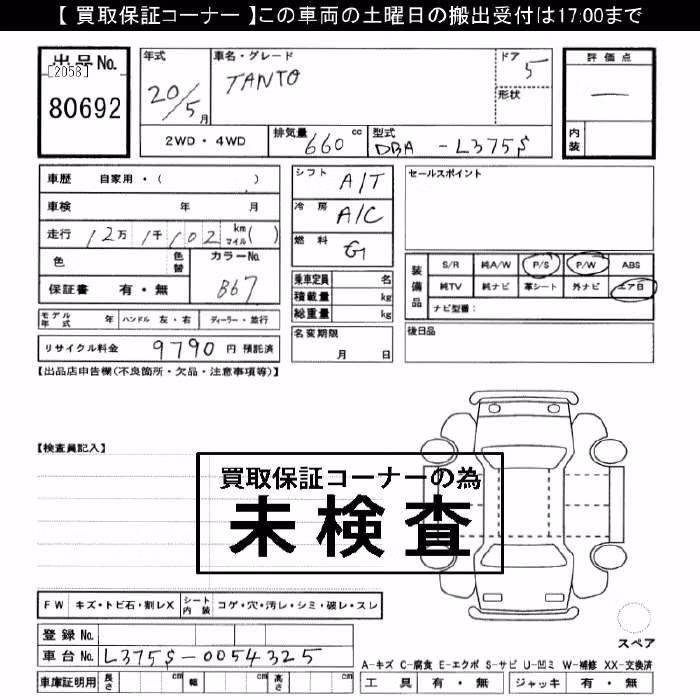 【 買取保証コーナー 】この車両の土曜日の搬出受付は17:00まで
出品No.
[2058]
80692
年式 20/5月
車名・グレード TANTO
ドア 5
形状
評価点 —
内装
2WD・4WD
排気量 660 cc
型式 DBA -L375S
車歴 自家用・( )
車検 年 月
走行 12万 1千 102 km マイル( )
色 色替 カラーNo. B67
保証書 有・無
モデル年式 年 ハンドル 左・右 ディーラー・並行
リサイクル料金 9790 円 預託済
シフト A/T
冷房 A/C
燃料 G
乗車定員 名
積載量 kg
総重量 kg
名変期限 月 日
セールスポイント
装備品
S/R 純A/W P/S P/W ABS
純TV 純ナビ 革シート 外ナビ エアB
ナビ型番:
後日品
【出品店申告欄(不良箇所・欠品・注意事項等)】
【検査員記入】
買取保証コーナーの為
未検査
FW キズ・トビ石・割レX シート内装 コゲ・穴・汚レ・シミ・破レ・スレ
登録No.
車台No. L375S-0054325
車庫証明用 長さ cm 幅 cm 高さ cm
スペア
A-キズ C-腐食 E-エクボ S-サビ U-凹ミ W-補修 XX-交換済
工具 有・無 ジャッキ 有・無